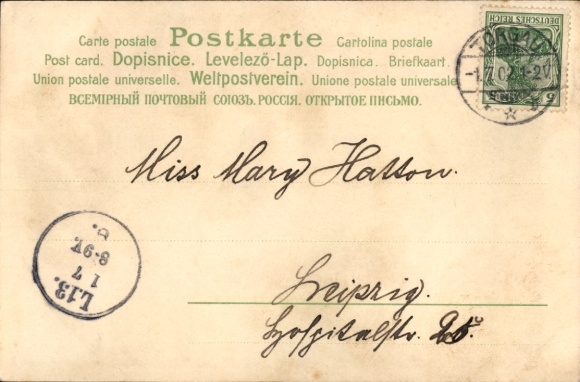 Carte postale Postkarte Cartolina postale
Post card. Dopisnice. Levelező-Lap. Dopisnica. Briefkaart.
Union postale universelle. Weltpostverein. Unione postale universale
ВСЕМІРНЫЙ ПОЧТОВЫЙ СОЮЗЪ. РОССІЯ. ОТКРЫТОЕ ПИСЬМО.
DEUTSCHES REICH
5
TORGAU
1-2N
Miss Mary Hatton.
L13.
1 7
8-9V.
c.
Leipzig.
Hospitalstr. 25.c